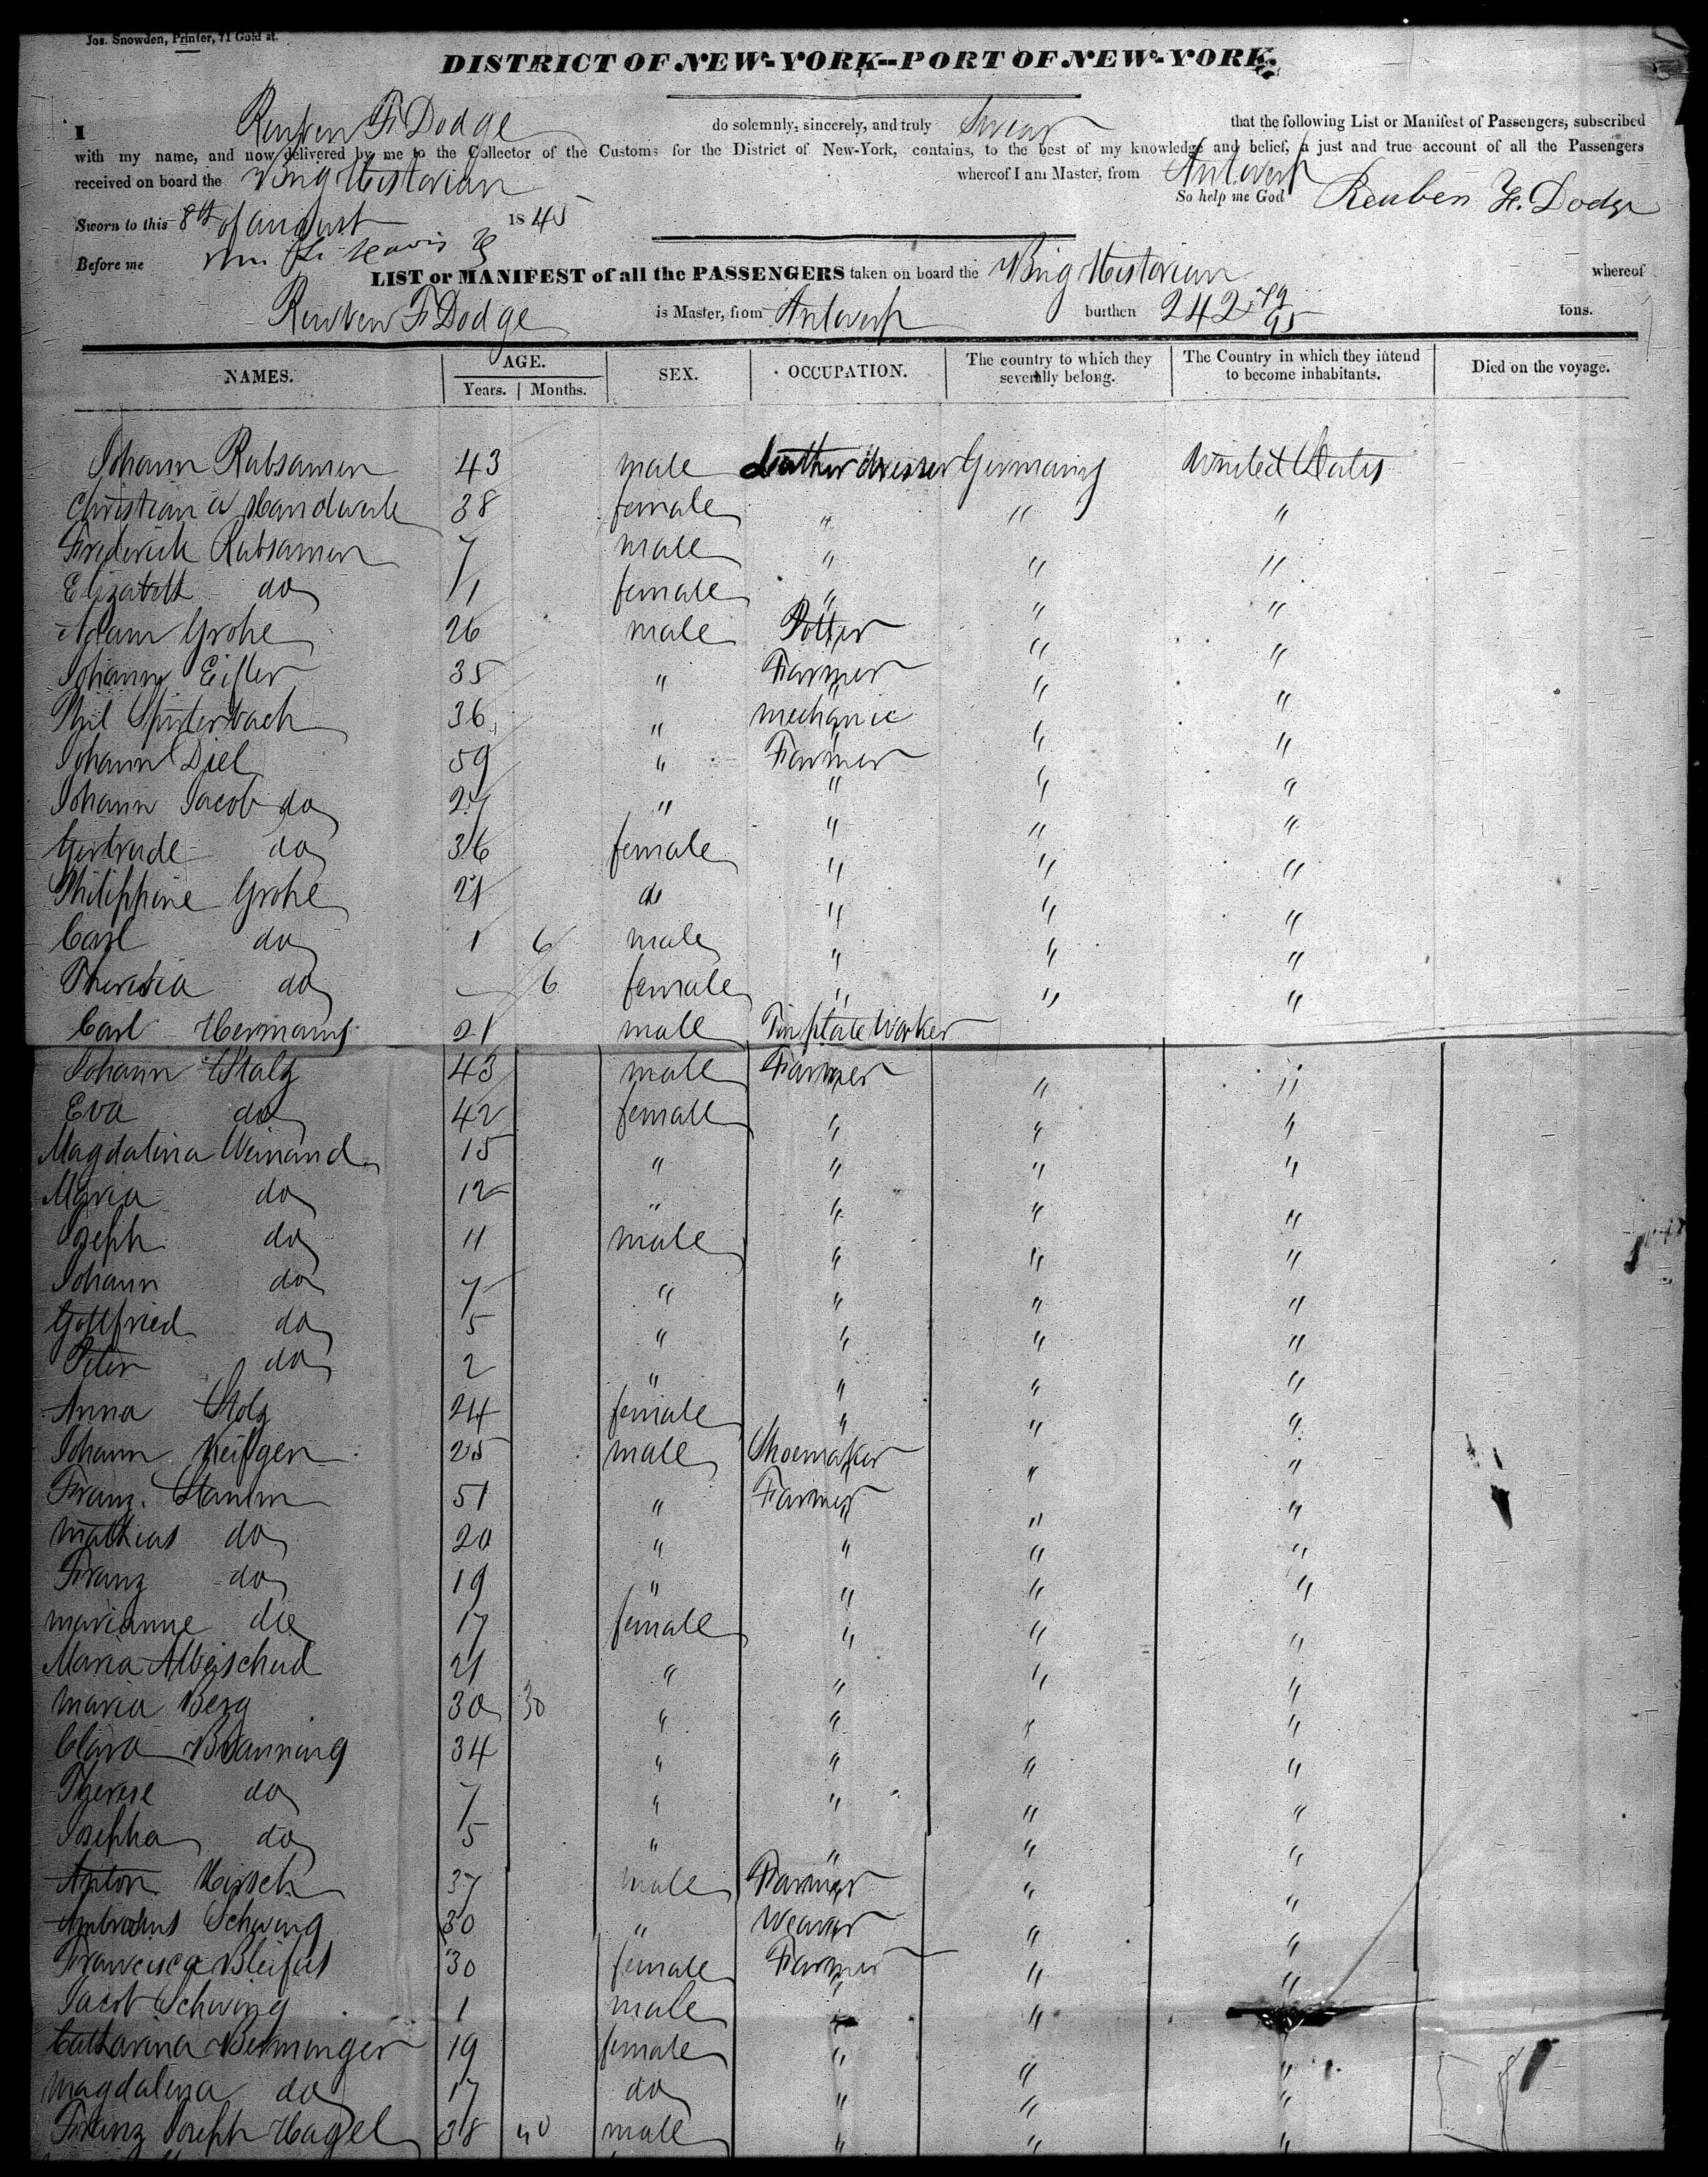 Jos. Snowden, Printer, 71 Gold st.
DISTRICT OF NEW-YORK--PORT OF NEW-YORK.
I Reuben F. Dodge do solemnly, sincerely, and truly Swear that the following List or Manifest of Passengers, subscribed
with my name, and now delivered by me to the Collector of the Customs for the District of New-York, contains, to the best of my knowledge and belief, a just and true account of all the Passengers
received on board the Brig Historian whereof I am Master, from Antwerp
So help me God Reuben F. Dodge
Sworn to this 8th of august 1845
Before me
LIST or MANIFEST of all the PASSENGERS taken on board the Brig Historian whereof
Reuben F Dodge is Master, from Antwerp burthen 242 79/95 tons.
NAMES. AGE. Years. Months. SEX. OCCUPATION. The country to which they severally belong. The Country in which they intend to become inhabitants. Died on the voyage.
Johann Rubsamen 43 male Leather dresser Germany United States
Christian a Handwerk 38 female " " "
Frederick Rubsamen 7 male " " "
Elizabeth do 11 female " " "
Adam Grohe 26 male Potter " "
Johann Eifler 35 " Farmer " "
Phil 36 " mechanic " "
Johann Diel 59 " Farmer " "
Johann Jacob do 27 " " " "
Gertrude do 36 female " " "
Philippine Grohe 21 do " " "
Carl do 1 6 male " " "
Theresia do — 6 female " " "
Carl Hermann 21 male Tin plate Worker
Johann Stolz 43 male Farmer " "
Eva do 42 female " " "
Magdalena Weinand 15 " " " "
Maria do 12 " " " "
Joseph do 11 male " " "
Johann do 7 " " " "
Gottfried do 5 " " " "
Peter do 2 " " " "
Anna Stolz 24 female " " "
Johann 25 male Shoemaker " "
Franz Stamm 51 " Farmer " "
Mathias do 20 " " " "
Franz do 19 " " " "
Marianne do 17 female " " "
Maria 21 " " " "
Maria Berg 30 30 " " " "
Clara Branning 34 " " " "
Therese do 7 " " " "
Josepha do 5 " " " "
Anton Hirsch 37 male Farmer " "
Ambrosius Schwing 30 " Weaver " "
Francisca Bleifus 30 female Farmer " "
Jacob Schwing 1 male " "
Catharina Berninger 19 female " " "
Magdalena do 17 do " " "
Franz Joseph Hagel 38 40 male " " "